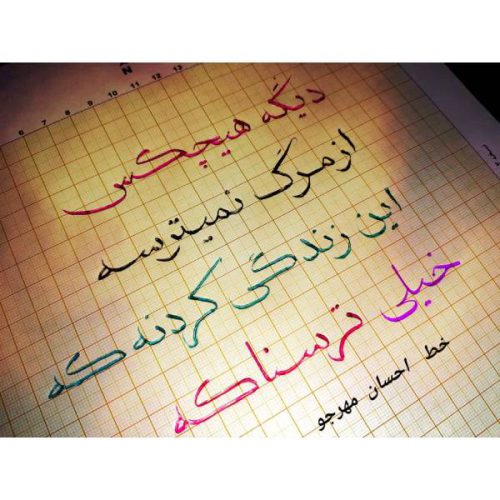 6 7 8 9 10 11 12 13
N
دیگه هیچکس
از مرگ نمیترسه
این زندگی کردنه که
خیلی ترسناکه
خط احسان مهرجو